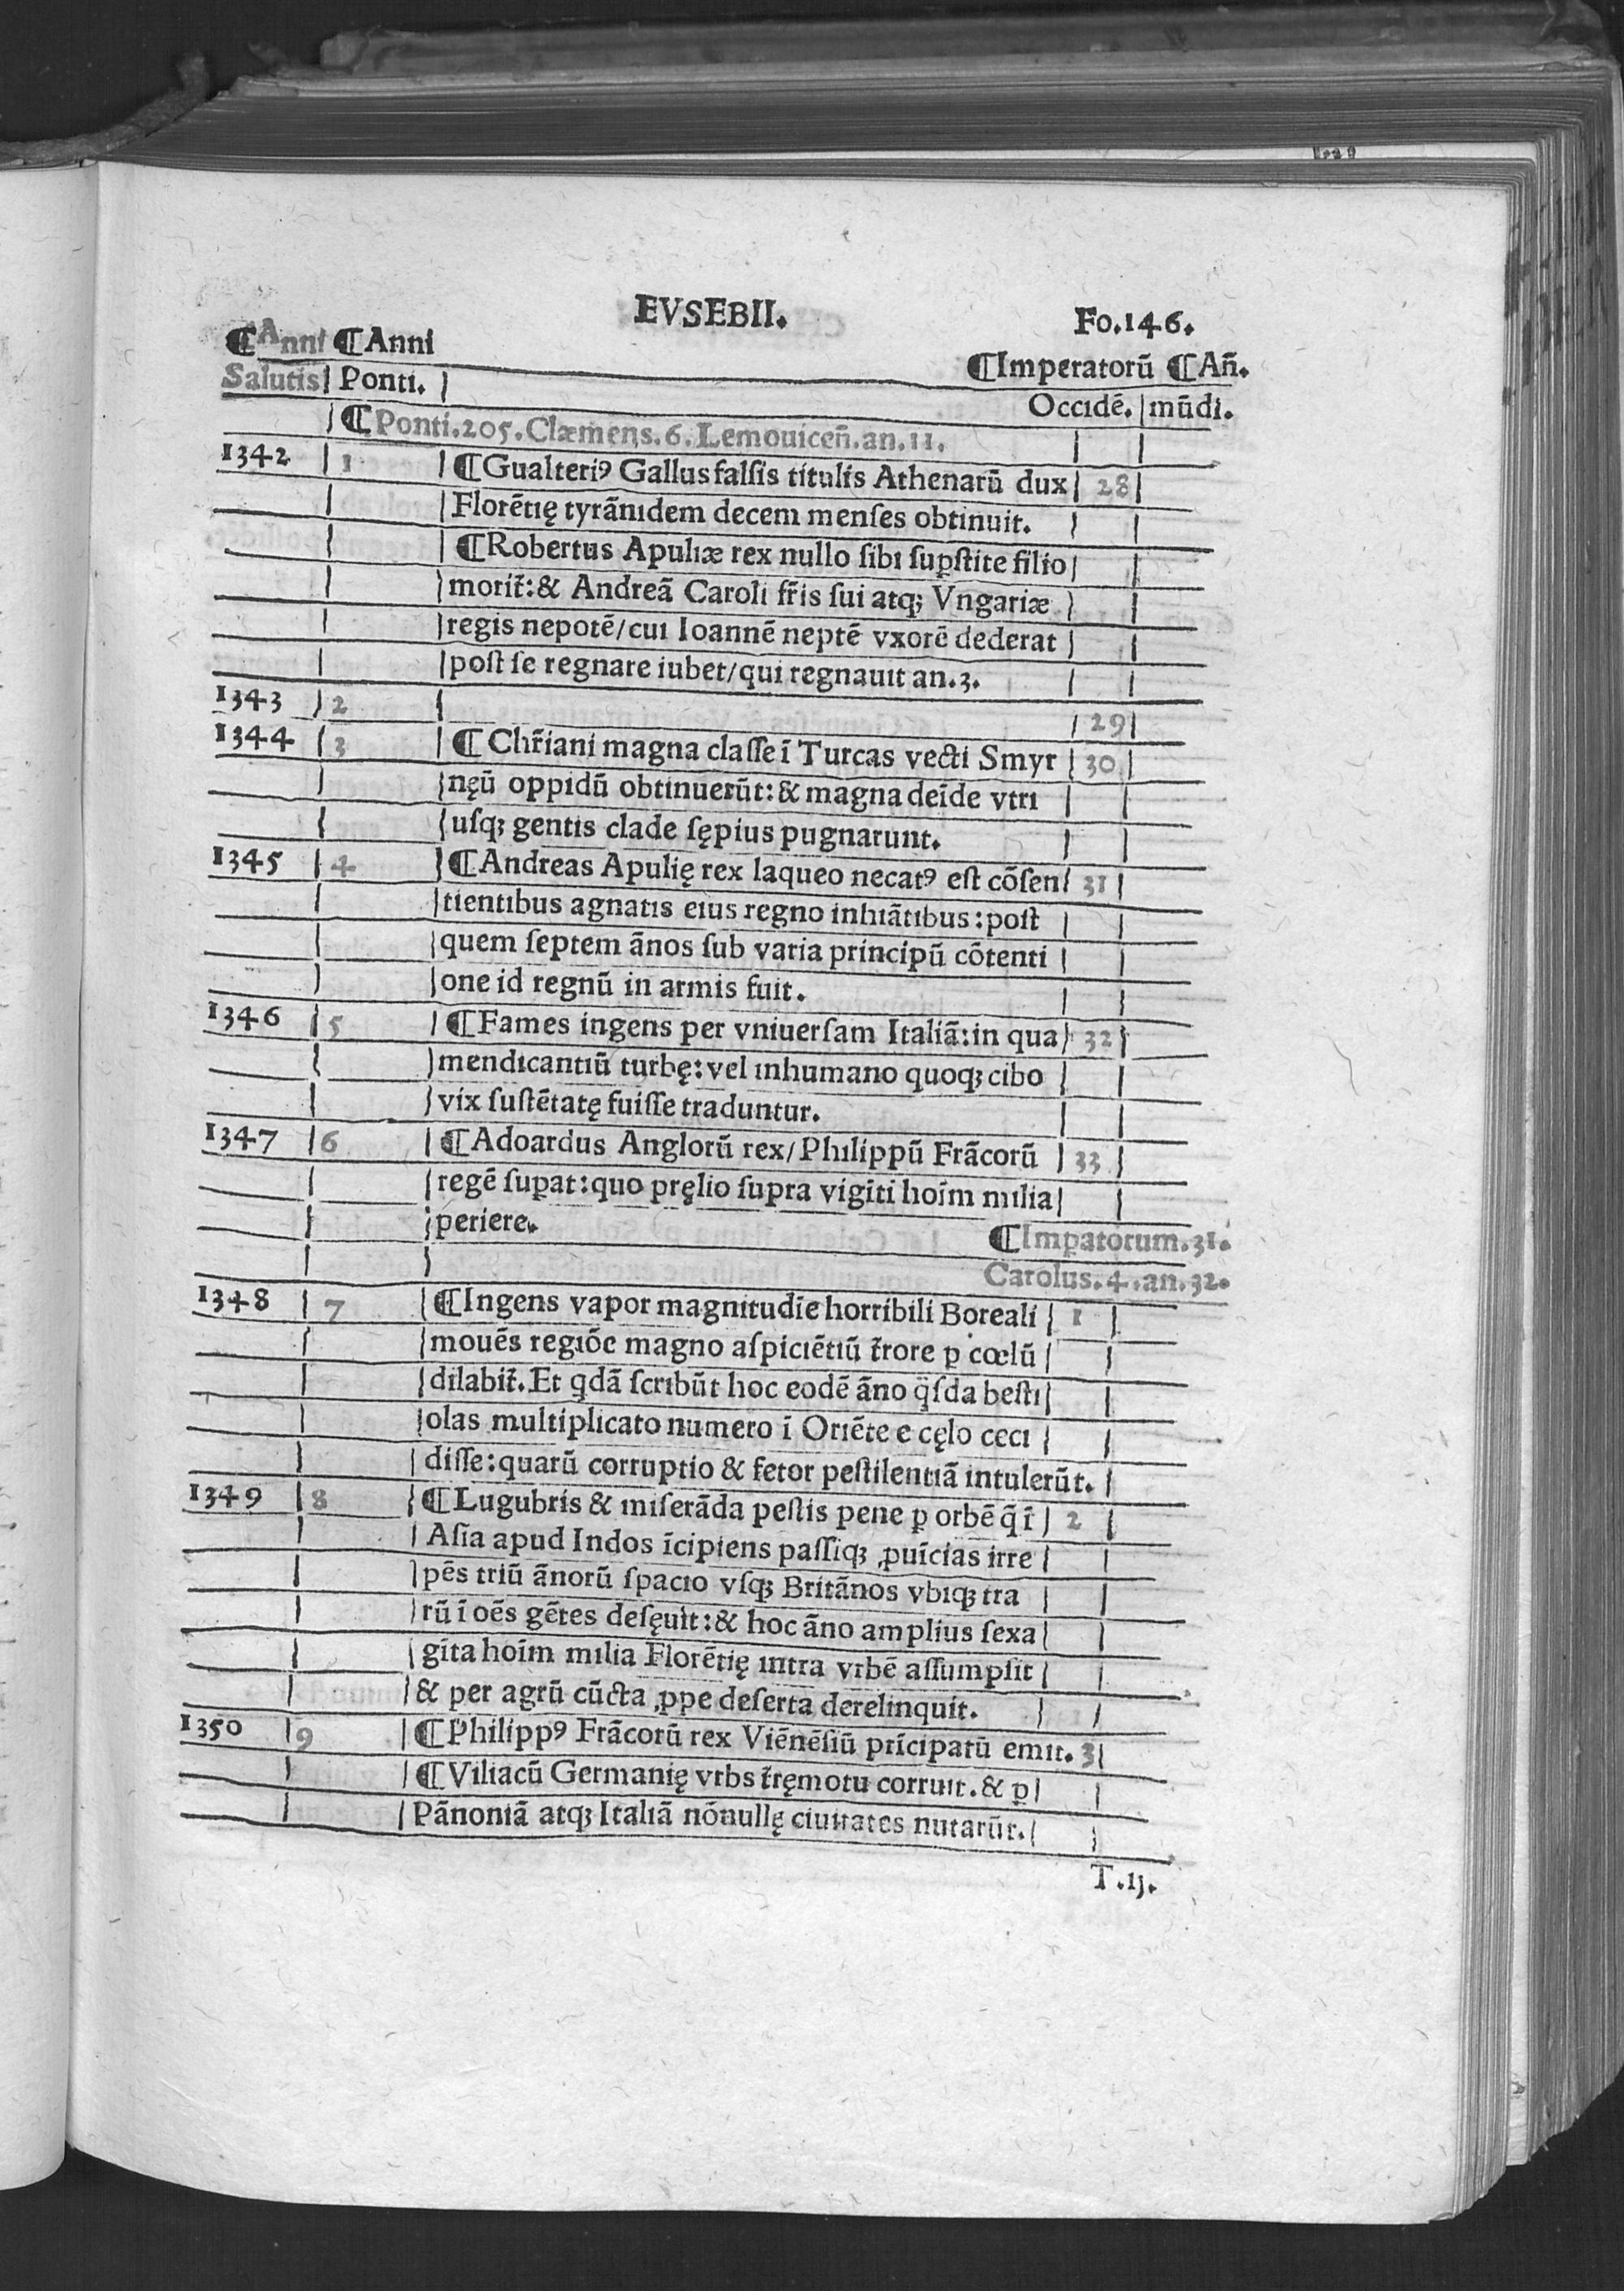 EVSEBII. Fo.146.
⸿Anni ⸿Anni ⸿Imperatorū ⸿An̄.
Salutis Ponti. Occidē. mūdi.
⸿Ponti.205.Clæmens.6.Lemouiceñ.an.11.
1342 1 ⸿Gualteriꝰ Gallus falſis titulis Athenarū dux 28
Florētię tyrānidem decem menſes obtinuit.
⸿Robertus Apuliæ rex nullo ſibi ſuꝑſtite filio
morit̃:& Andreā Caroli fr̃is ſui atqꝫ Vngariæ
regis nepotē/cui Ioannē neptē vxorē dederat
poſt ſe regnare iubet/qui regnauit an.3.
1343 2 29
1344 3 ⸿Chr̃iani magna claſſe ī Turcas vecti Smyr 30
nęū oppidū obtinuerūt:& magna deīde vtri
uſqꝫ gentis clade ſępius pugnarunt.
1345 4 ⸿Andreas Apulię rex laqueo necatꝰ eſt cōſen 31
tientibus agnatis eius regno inhiātibus:poſt
quem ſeptem ānos ſub varia principū cōtenti
one id regnū in armis fuit.
1346 5 ⸿Fames ingens per vniuerſam Italiā:in qua 32
mendicantiū turbę:vel inhumano quoqꝫ cibo
vix ſuſtētatę fuiſſe traduntur.
1347 6 ⸿Adoardus Anglorū rex/Philippū Frācorū 33
regē ſuꝑat:quo pręlio ſupra vigīti hoīm milia
periere. ⸿Imꝑatorum.31.
Carolus.4.an.32.
1348 7 ⸿Ingens vapor magnitudīe horribili Boreali 1
mouēs regiōe magno aſpiciētiū t̃rore ꝑ cœlū
dilabit̃.Et q̇dā ſcribūt hoc eodē āno q̃ſda beſti
olas multiplicato numero ī Oriēte e cęlo ceci
diſſe:quarū corruptio & fetor peſtilentiā intulerūt.
1349 8 ⸿Lugubris & miſerāda peſtis pene ꝑ orbē q̄ ī 2
Aſia apud Indos īcipiens paſſiqꝫ ꝓuīcias irre
pēs triū ānorū ſpacio vſqꝫ Britānos vbiqꝫ tra
rū ī oēs gētes deſęuit:& hoc āno amplius ſexa
gīta hoīm milia Florētię intra vrbē aſſumpſit
& per agrū cūcta ꝓpe deſerta derelinquit.
1350 9 ⸿Philippꝰ Frācorū rex Viēnēſiū prīcipatū emit. 3
⸿Viliacū Germanię vrbs t̃ręmotu corruit.& ꝑ
Pānoniā atqꝫ Italiā nōnullę ciuitates nutarūt.
T.ij.